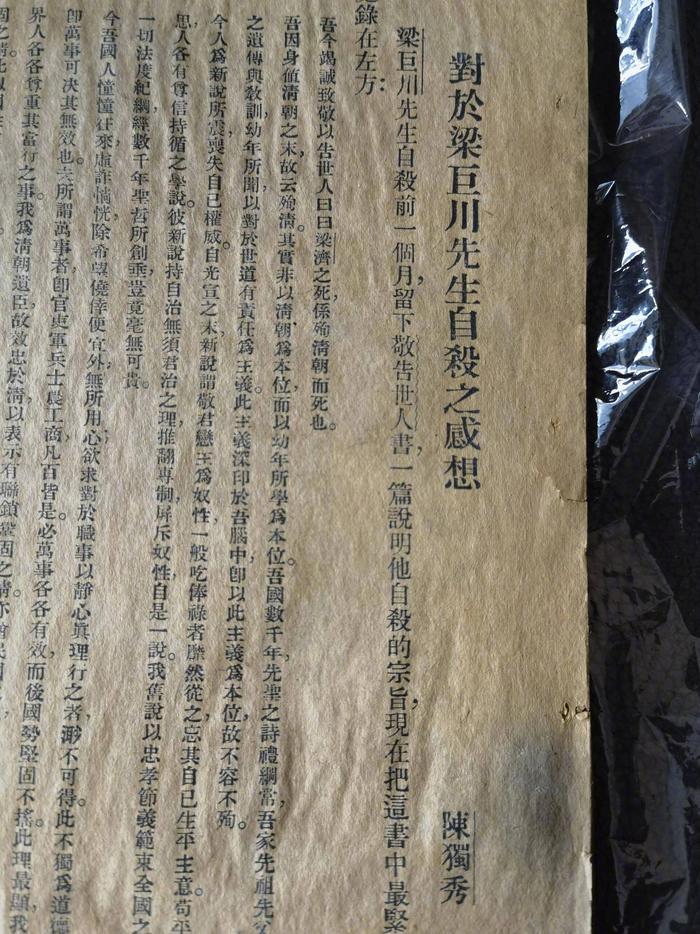 對於梁巨川先生自殺之感想
陳獨秀
梁巨川先生自殺前一個月，留下敬告世人書一篇，說明他自殺的宗旨，現在把這書中最緊
錄在左方：
吾今竭誠致敬以告世人曰：梁濟之死，係殉清朝而死也。
吾因身值清朝之末，故云殉清。其實非以清朝爲本位，而以幼年所學爲本位。吾國數千年先聖之詩禮綱常，吾家先祖先父
之遺傳與教訓，幼年所聞，以對於世道有責任爲主義。此主義深印於吾腦中，即以此主義爲本位，故不容不殉。
今人爲新說所震，喪失自己權威。自光宣之末，新說謂敬君戀主爲奴性，一般吃俸祿者靡然從之，忘其自己生平主意。苟平
思人各有尊信持循之學說。彼新說持自治無須君治之理，推翻專制，屏斥奴性，自是一說。我舊說以忠孝節義範束全國之
一切法度紀綱，經數千年聖哲所創垂，豈竟毫無可貴。
今吾國人憧憧往來，虛詐惝恍，除希望僥倖便宜外，無所用心，欲求對於職事以靜心眞理行之者，渺不可得。此不獨爲道德
即萬事可決其無效也。夫所謂萬事者，即官吏軍兵士農工商，凡百皆是。必萬事各各有效，而後國勢堅固不搖。此理最顯，我
界人各各尊重其當行之事。我爲清朝遺臣，故效忠於清，以表示有聯鎖鞏固之情。